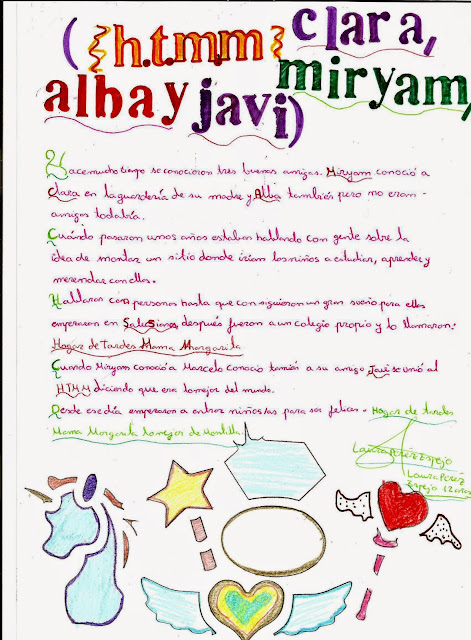 ({h.t.m.m} clara,
miryam,
alba y javi)
Hace mucho tiempo se conocieron tres buenas amigas. Miryam conoció a
Clara en la guardería de su madre y Alba también pero no eran
amigas todabía.
Cuándo pasaron unos años estaban hablando con gente sobre la
idea de montar un sitio donde irían los niños a estudiar, aprender y
merendar con ellos.
Hablaron con personas hasta que consiguieron un gran sueño para ellas
empezaron en Salesianos, después fueron a un colegio propio y lo llamaron:
Hogar de Tardes Mama Margarita
Cuando Miryam conoció a Marcelo conocio tamién a su amigo Javi se unió al
H.T.M.M diciendo que era lo mejor del mundo.
Desde ese día empezaron a entrar niños/as para ser felices. Hogar de tardes
Mama Margarita lo mejor de Montilla.
Laura Pérez Espejo
Laura Pérez
Espejo 12 años